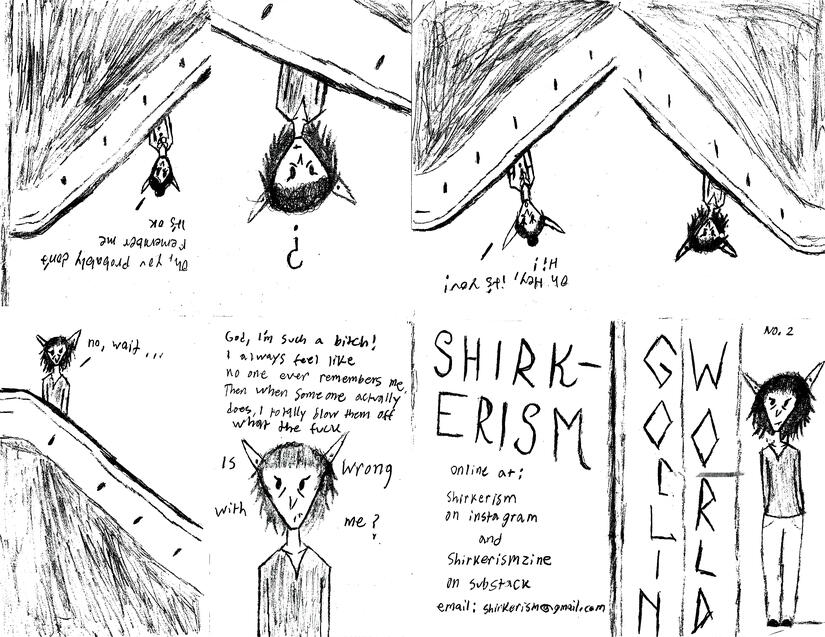 Oh Hey, it's you!
Hi!
?
Oh, you probably don't
remember me
It's ok
no, wait...
God, I'm such a bitch!
I always feel like
no one ever remembers me.
Then when someone actually
does, I totally blow them off
what the fuck
Is wrong
with me?
SHIRK-
ERISM
online at:
shirkerism
on instagram
and
Shirkerismzine
on substack
email: shirkerism@gmail.com
NO. 2
GOBLIN
WORLD